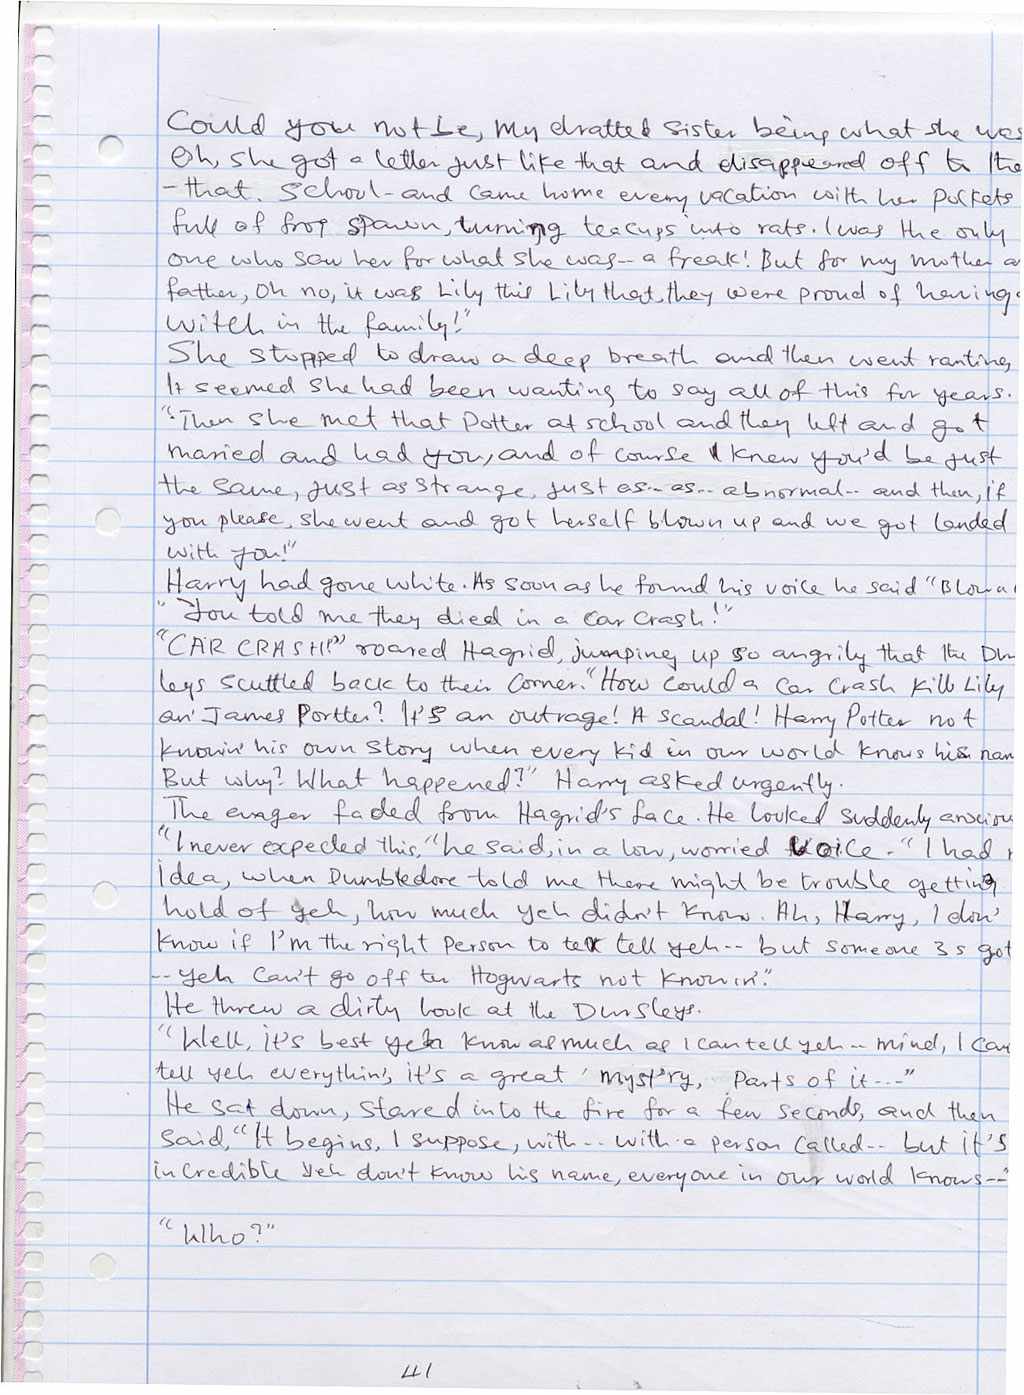 Could you not be, my dratted sister being what she was
Oh, she got a letter just like that and disappeared off to the
-that. School - and came home every vacation with her pockets
full of frog spawn, turning teacups into rats. I was the only
one who saw her for what she was -- a freak! But for my mother a
father, oh no, it was Lily this Lily that, they were proud of having a
witch in the family!"
She stopped to draw a deep breath and then went ranting
It seemed she had been wanting to say all of this for years.
"Then she met that Potter at school and they left and got
maried and had you, and of course I knew you'd be just
the same, just as strange, just as -- as -- abnormal -- and then, if
you please, she went and got herself blown up and we got landed
with you!"
Harry had gone white. As soon as he found his voice he said "Blown
"You told me they died in a car crash!"
"CAR CRASH!" roared Hagrid, jumping up so angrily that the Dur
leys scuttled back to their corner. "How could a car crash kill Lily
an' James Portter? It's an outrage! A scandal! Harry Potter not
knowin' his own story when every kid in our world knows his nam
But why? What happened?" Harry asked urgently.
The anger faded from Hagrid's face. He looked suddenly ansciou
"I never expected this," he said, in a low, worried voice - "I had n
idea, when Dumbledore told me there might be trouble getting
hold of yeh, how much yeh didn't know. Ah, Harry, I don'
know if I'm the right person to tell yeh -- but someone 3 s got
-- yeh can't go off ter Hogwarts not knowin'."
He threw a dirty look at the Dursleys.
"Well, it's best yeh know as much as I can tell yeh -- mind, I can
tell yeh everythin', it's a great ' myst'ry, parts of it ---"
He sat down, stared into the fire for a few seconds, and then
said, "It begins, I suppose, with -- with a person called -- but it's
incredible yeh don't know his name, everyone in our world knows --"
"Who?"
41